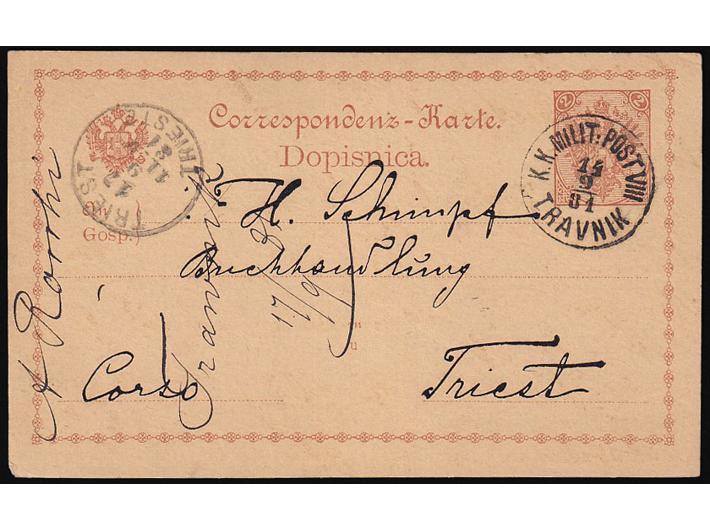 Correspondenz-Karte.
Dopisnica.
2
2
K.K. MILIT: POST VIII
11
9
81
TRAVNIK
TRIEST TRIESTE
Gosp.)
H. Schimpf
Buchhandlung
Corso
Triest
Travnik